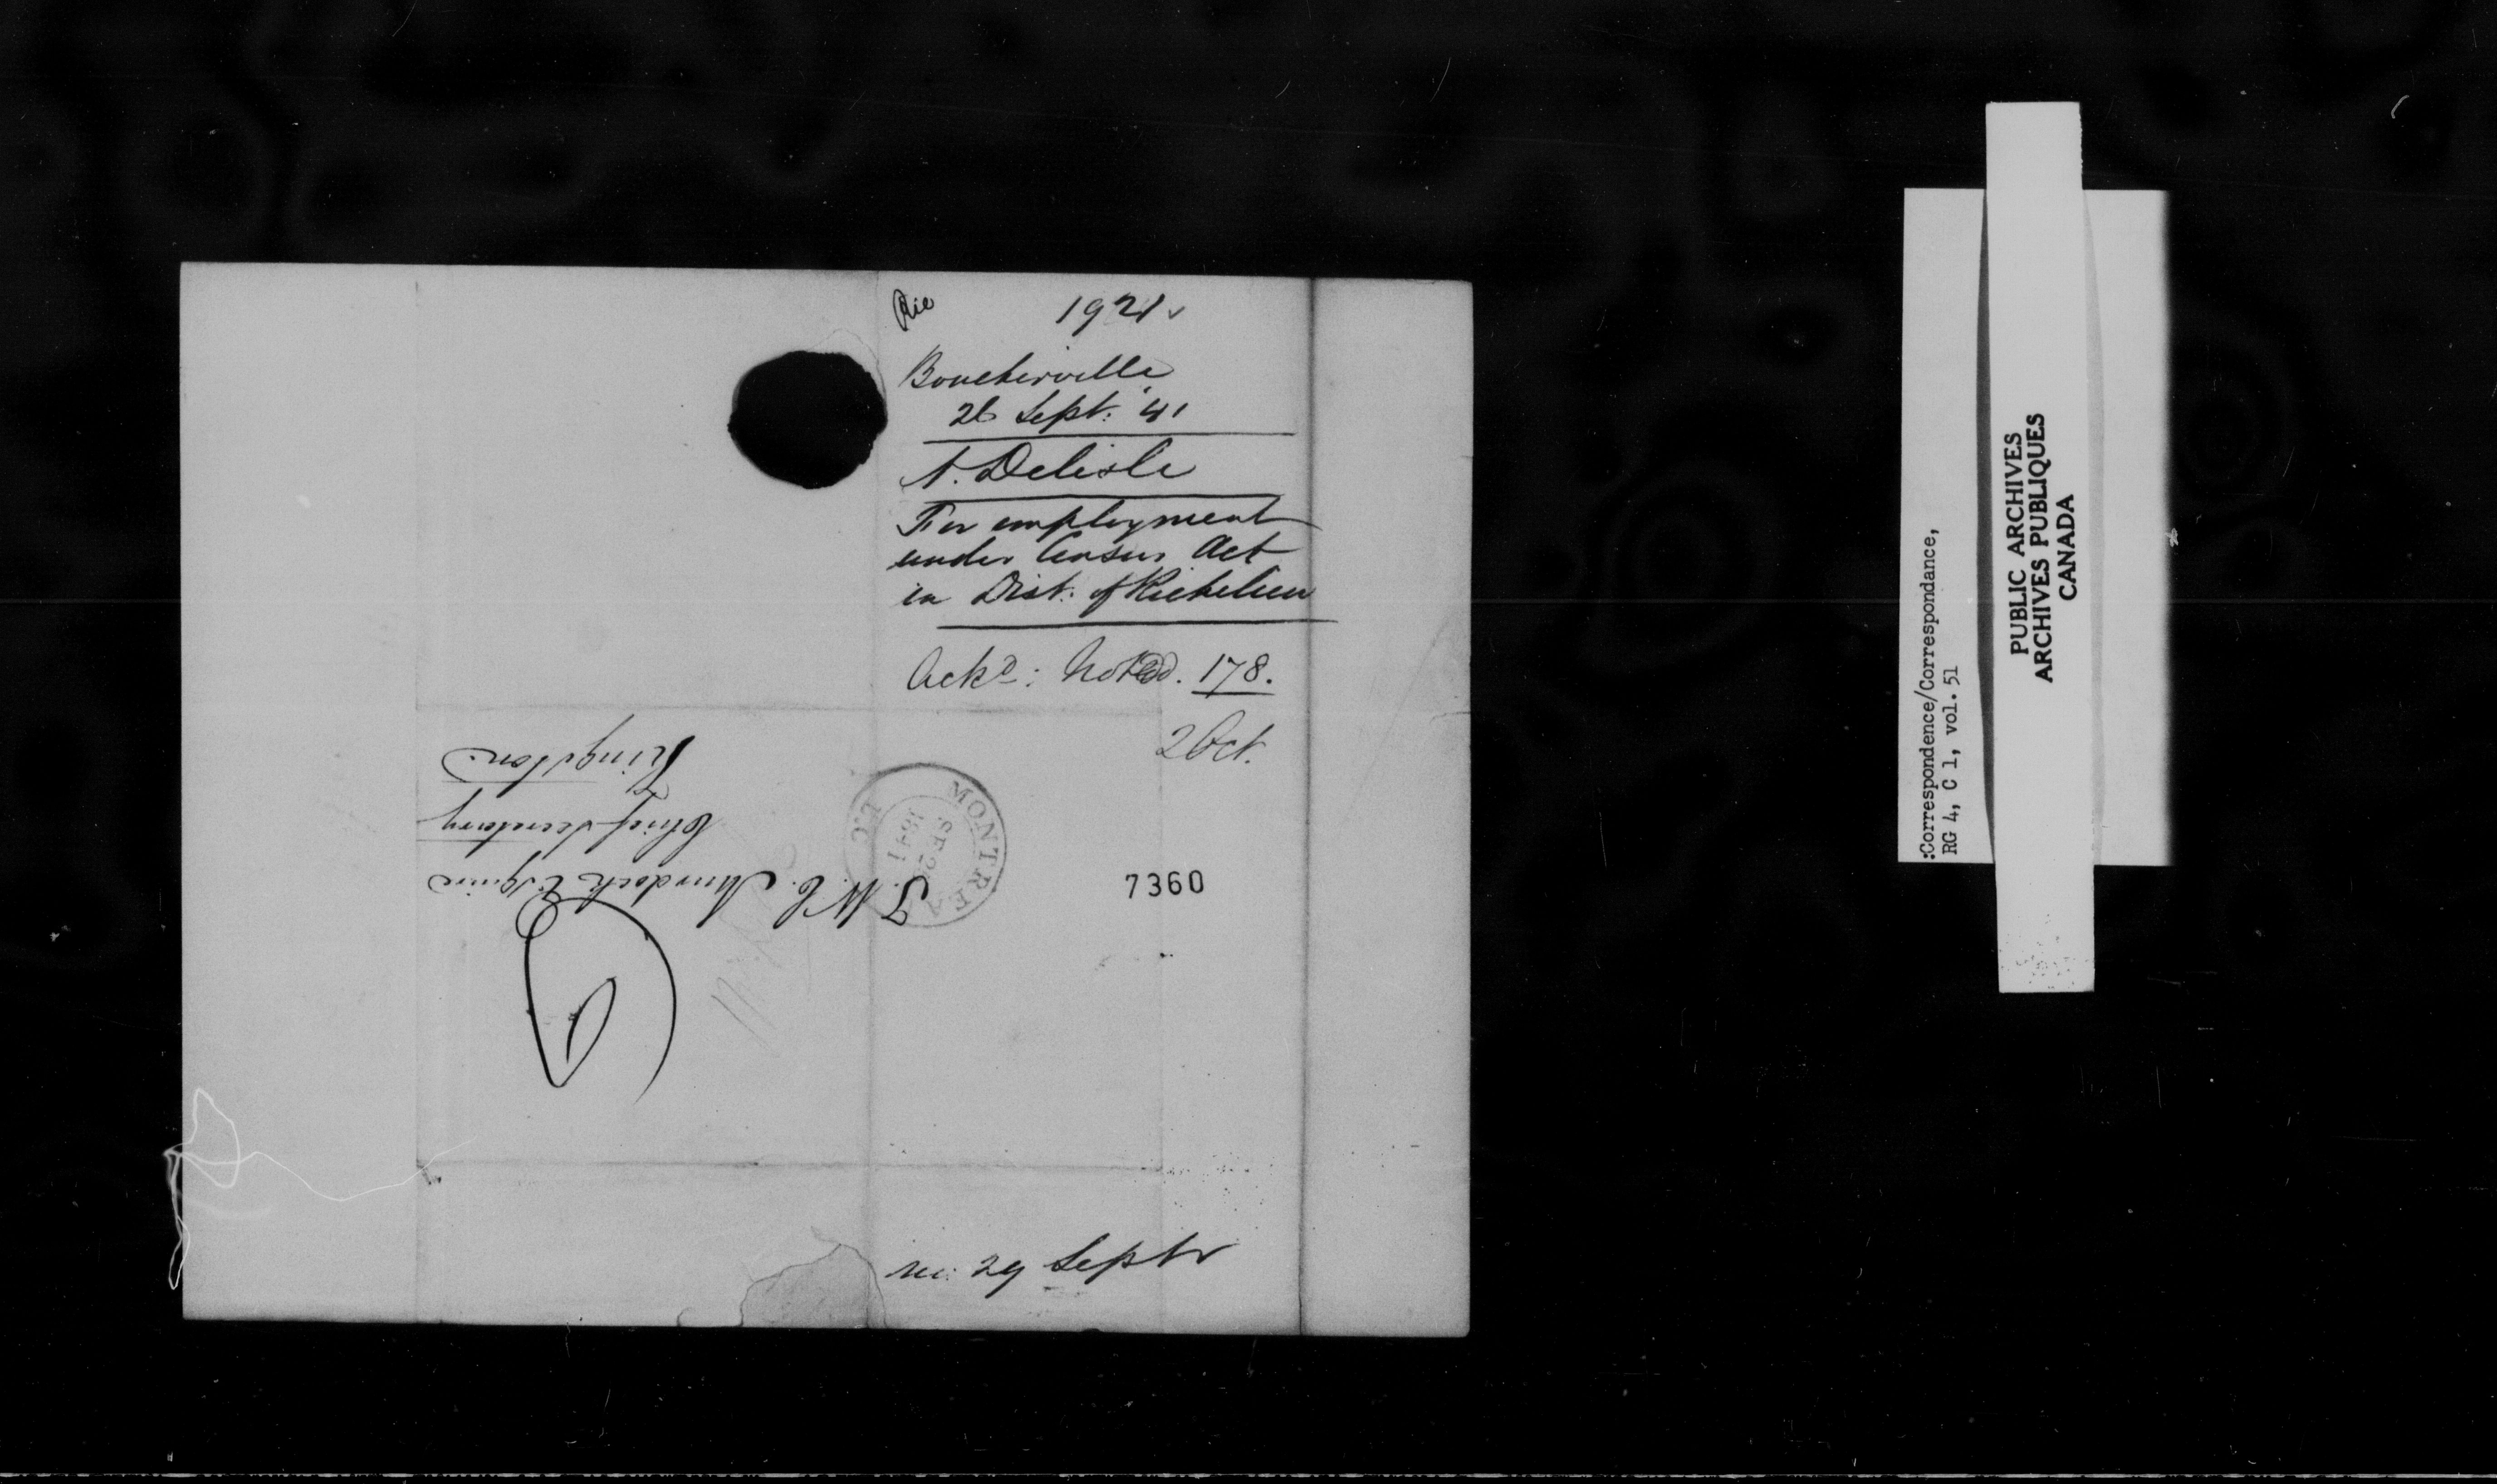 Ric
1921
Boucherville
26 Sept. '41
A. Delisle
For employment
under Census Act
in Dist. of Richelieu
Ackd: Noted. 178.
2 Oct.
T. W. C. Murdoch Esquire
Chief Secretary
Kingston
MONTREAL L.C
SE 2
1841
7360
rec: 29 Septr
:Correspondence/Correspondance,
RG 4, C 1, vol. 51
PUBLIC ARCHIVES
ARCHIVES PUBLIQUES
CANADA